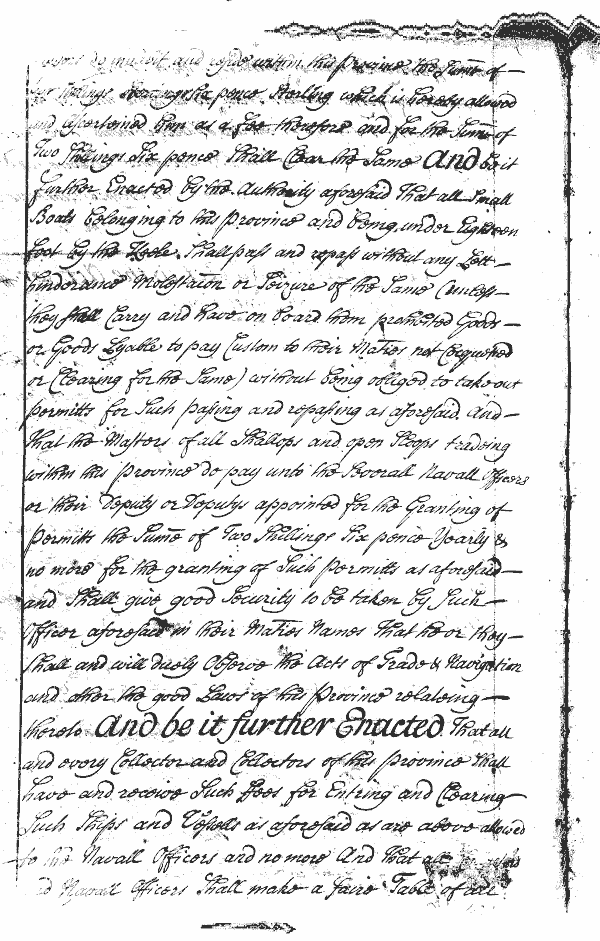 and reside within this Province the Sume of
pence Sterling which is hereby allowed
and Ascertained them as a fee therefore and for the Sume of
Two Shillings Six pence Shall Clear the Same And be it
further Enacted by the Authority aforesaid That all Small
Boats belonging to this Province and being under Eighteen
foot by the Keele Shall pass and repass without any Lett
hinderance Molestation or Seizure of the Same (unless
they shall Carry and have on board them prohibited Goods
or Goods Lyable to pay Custom to their Maties not Cocquetted
or Clearing for the Same) without being obliged to take out
permitts for Such passing and repassing as aforesaid. And
That the Masters of all Shallops and open Sloops tradeing
within this Province do pay unto the Severall Navall Officers
or their Deputy or Deputys appointed for the Granting of
Permitts the Sume of Two Shillings Six pence Yearly &
no more for the granting of Such Permitts as aforesaid
and Shall give good Security to be taken by Such
Officer aforesaid in their Maties Names That he or they
Shall and will duely Observe the Acts of Trade & Navigation
and other the good Laws of this Province relateing
thereto And be it further Enacted That all
and every Collector and Collectors of this Province Shall
have and receive Such Fees for Entring and Clearing
Such Ships and Vessells as aforesaid as are above allowed
to the Navall Officers and no more And that all
Navall Officers Shall make a faire Table of all